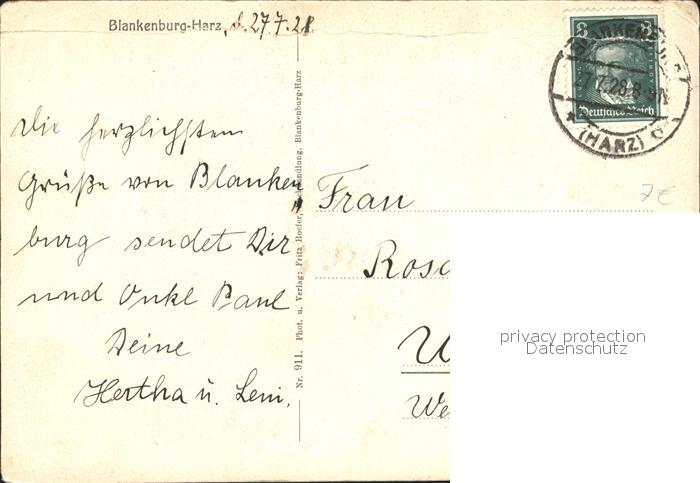 Blankenburg-Harz, d. 27.7.28
8 8
Deutsches Reich
27.7.28. 8-9 N
* (HARZ)
7€
Die herzlichsten
Grüße von Blanken
burg sendet Dir
und Onkl Paul
Deine
Hertha u. Leni.
Nr. 911. Phot. u. Verlag: Fritz Hoefer, Buchhandlung, Blankenburg-Harz
Frau
privacy protection
Datenschutz